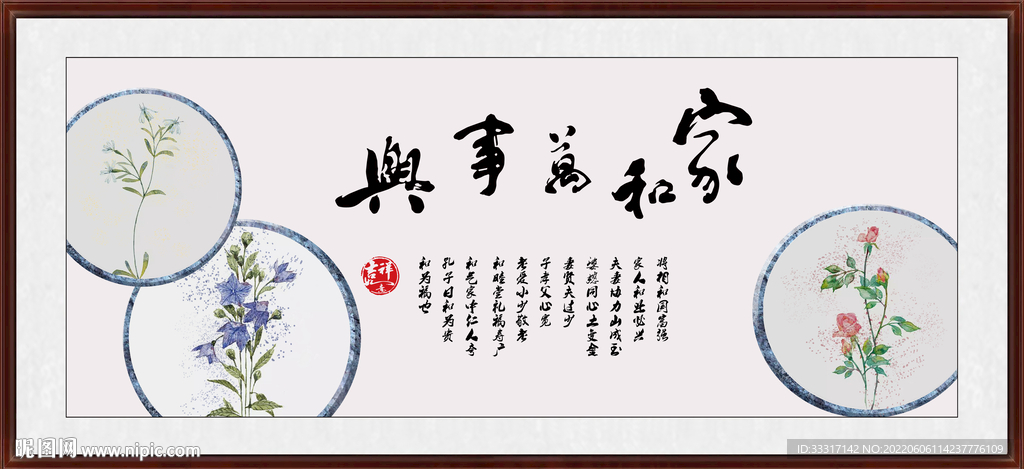 家和萬事興
将相和国富强
家人和业必兴
夫妻协力山成玉
婆媳同心土变金
妻贤夫过少
子孝父心宽
老爱小少敬老
和睦堂礼福寿广
和气家中仁人奇
孔子曰和为贵
和为福也
吉祥
昵图网 www.nipic.com
ID:33317142 NO:20220606114237776109